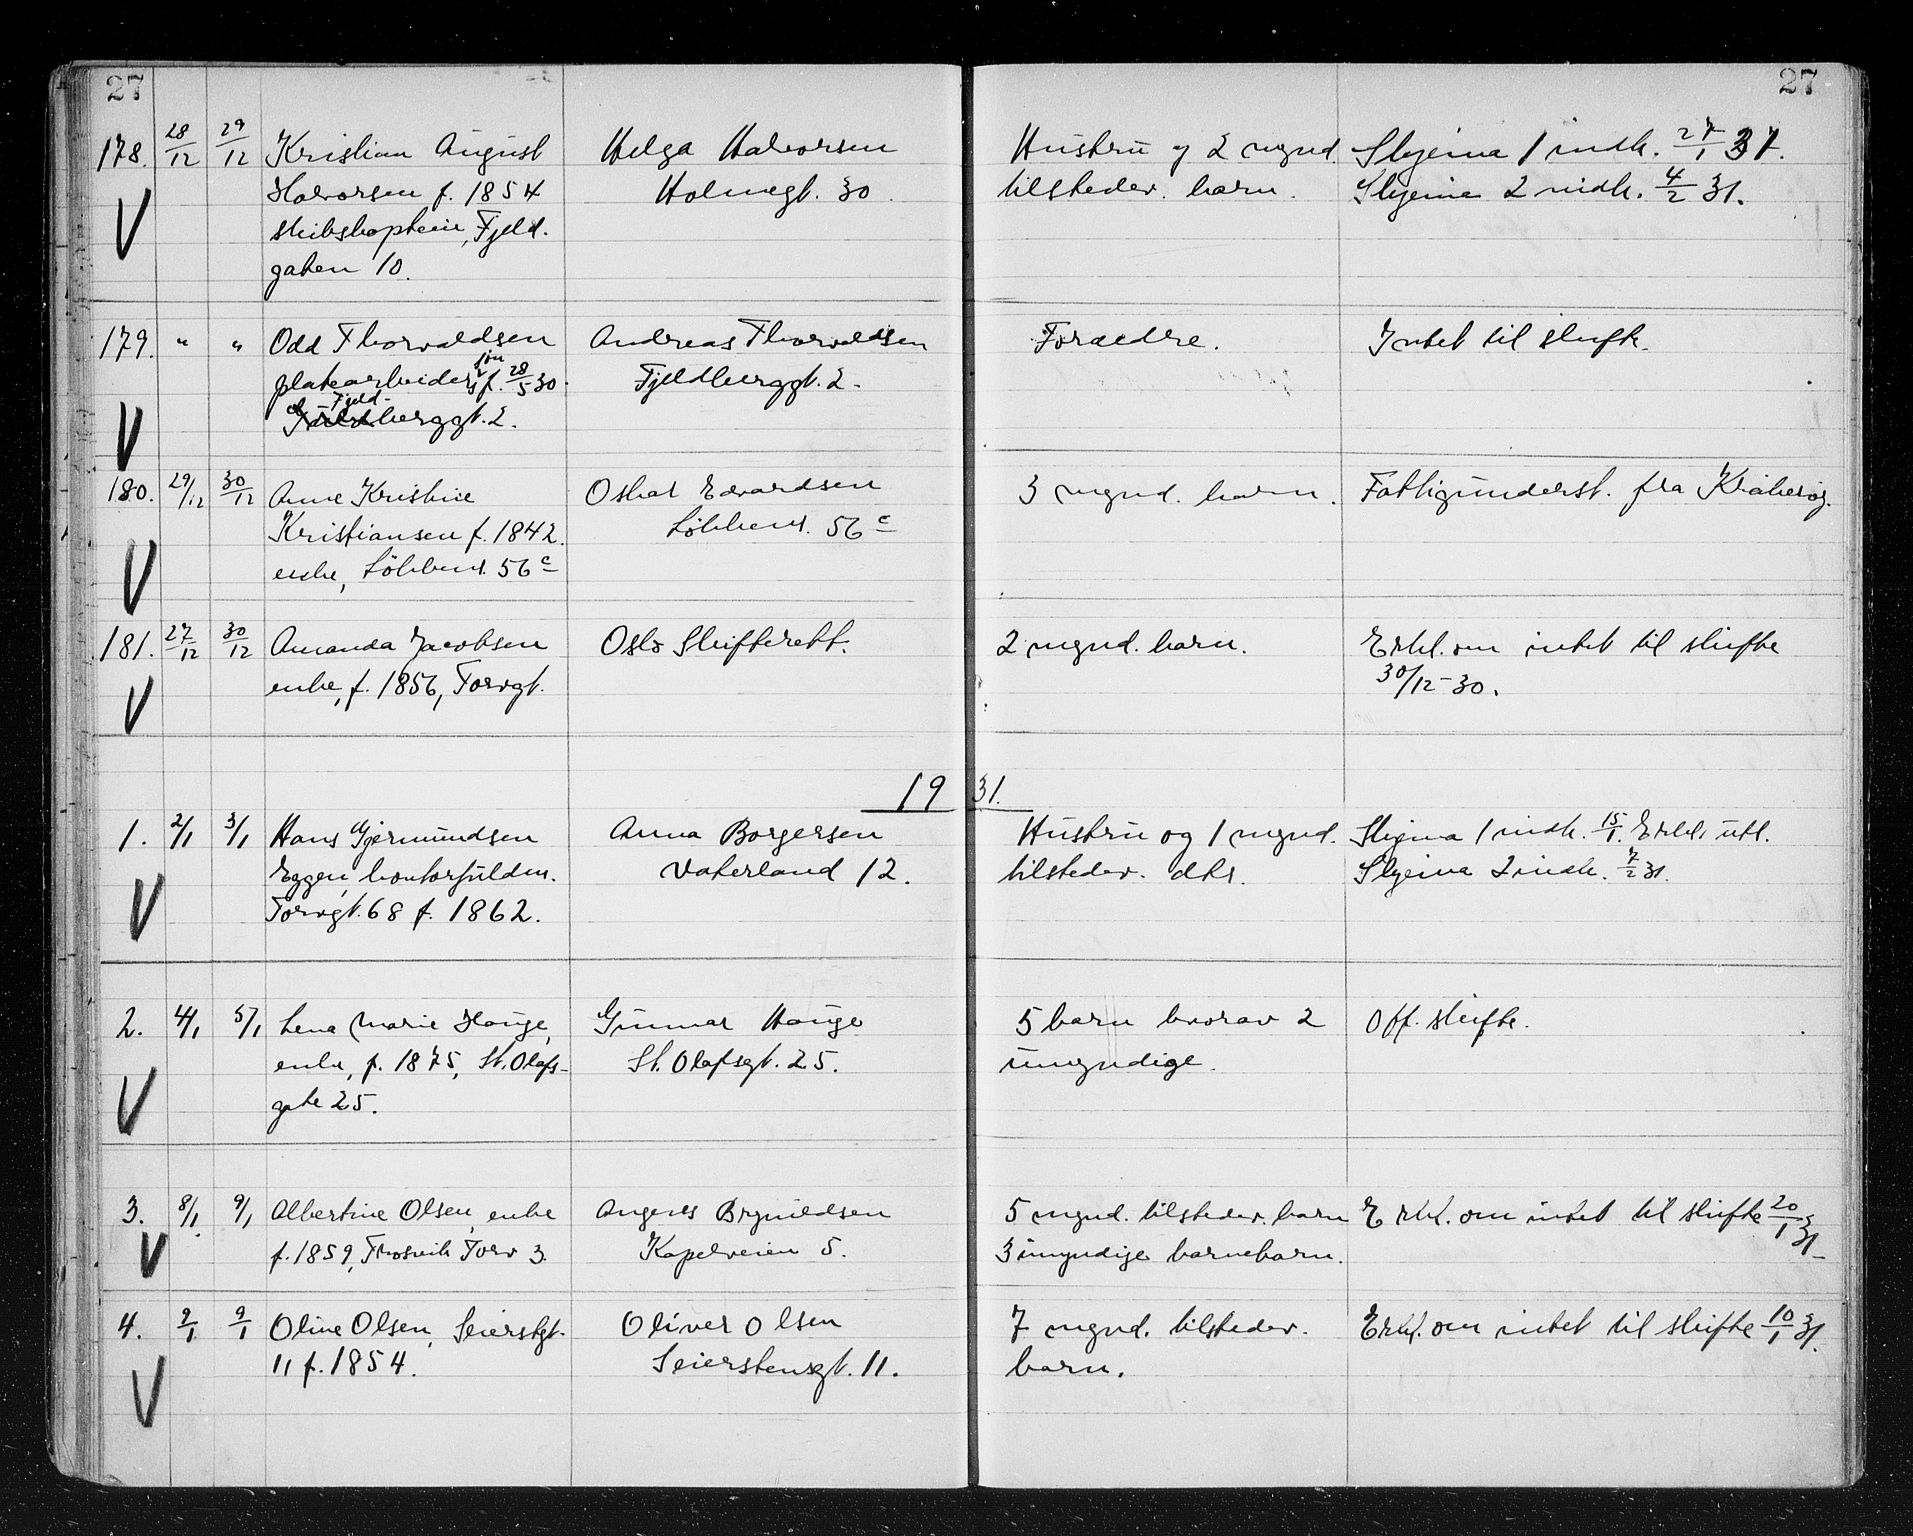 27
27
178. 28/12 29/12 Kristian August Helga Halvorsen Hustru og 2 mynd. Skjema 1 indk. 27/1 31.
Halvorsen f. 1854 Holmegt. 30. tilstedev. barn. Skjema 2 indk. 4/2 31.
skibskaptein, Fjeld-
gaten 10.
179. " " Odd Thorvaldsen Andreas Thorvaldsen Forældre. Intet til skifte.
platearbeiders søn f. 28/5 30. Fjeldberggt. 2.
Fjeld-
berggt. 2.
180. 29/12 30/12 Anne Kristine Oskar Edvardsen 3 mynd. barn. Fattigunderst. fra Kråkerøy.
Kristiansen f. 1842. Løkkeno. 56 c
enke, Løkkeno. 56 c
181. 27/12 30/12 Amanda Jacobsen Oslo Skifterett. 2 mynd. barn. Erkl. om intet til skifte
enke, f. 1856, Torvgt. 30/12-30.
1931.
1. 2/1 3/1 Hans Gjermundsen Anna Borgersen Hustru og 1 mynd. Skjema 1 indk. 15/1. Erkl. utl.
Eggen, kontorfuldm. Vaterland 12. tilstedev. dtr. Skjema 2 indk. 7/2 31.
Torvgt. 68 f. 1862.
2. 4/1 5/1 Lena Marie Hauge, Gunnar Hauge 5 barn hvorav 2 Off. skifte.
enke, f. 1875, St. Olafs- St. Olafsgt. 25. umyndige.
gate 25.
3. 8/1 9/1 Albertine Olsen, enke Angenes Brynildsen 5 mynd. tilstedev. barn Erkl. om intet til skifte 20/1 31
f. 1859, Trosvik Torv 3. Kapelveien 5. 3 umyndige barnebarn.
4. 9/1 9/1 Oline Olsen, Seierstgt. Oliver Olsen 7 mynd. tilstedev. Erkl. om intet til skifte 10/1 31.
11 f. 1854. Seierstensgt. 11. barn.